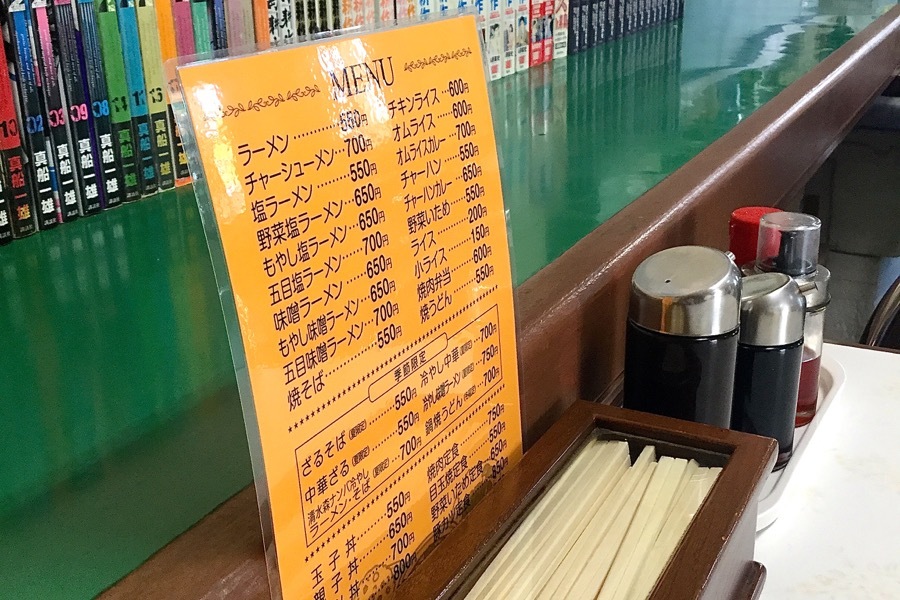 MENU
ラーメン…………550円
チャーシューメン…700円
塩ラーメン………550円
野菜塩ラーメン…650円
もやし塩ラーメン…650円
五目塩ラーメン…700円
味噌ラーメン……650円
もやし味噌ラーメン…650円
五目味噌ラーメン…700円
焼そば…………550円
チキンライス…600円
オムライス……600円
オムライスカレー…700円
チャーハン……550円
チャーハンカレー…650円
野菜いため……550円
ライス…………200円
小ライス………150円
焼肉弁当………600円
焼うどん………550円
季節限定
ざるそば(夏限定)……550円
中華ざる(夏限定)……550円
清水森ナンバ冷やし
ラーメン・そば……700円
冷やし中華(夏限定)…700円
冷やし味噌ラーメン(夏限定)…750円
鍋焼うどん(冬限定)…700円
玉子丼…………550円
親子丼…………650円
丼…………700円
800
焼肉定食………750円
目玉焼定食
野菜いため定食…650円
定食
真船一雄
真船一雄
真船一雄
真船一雄